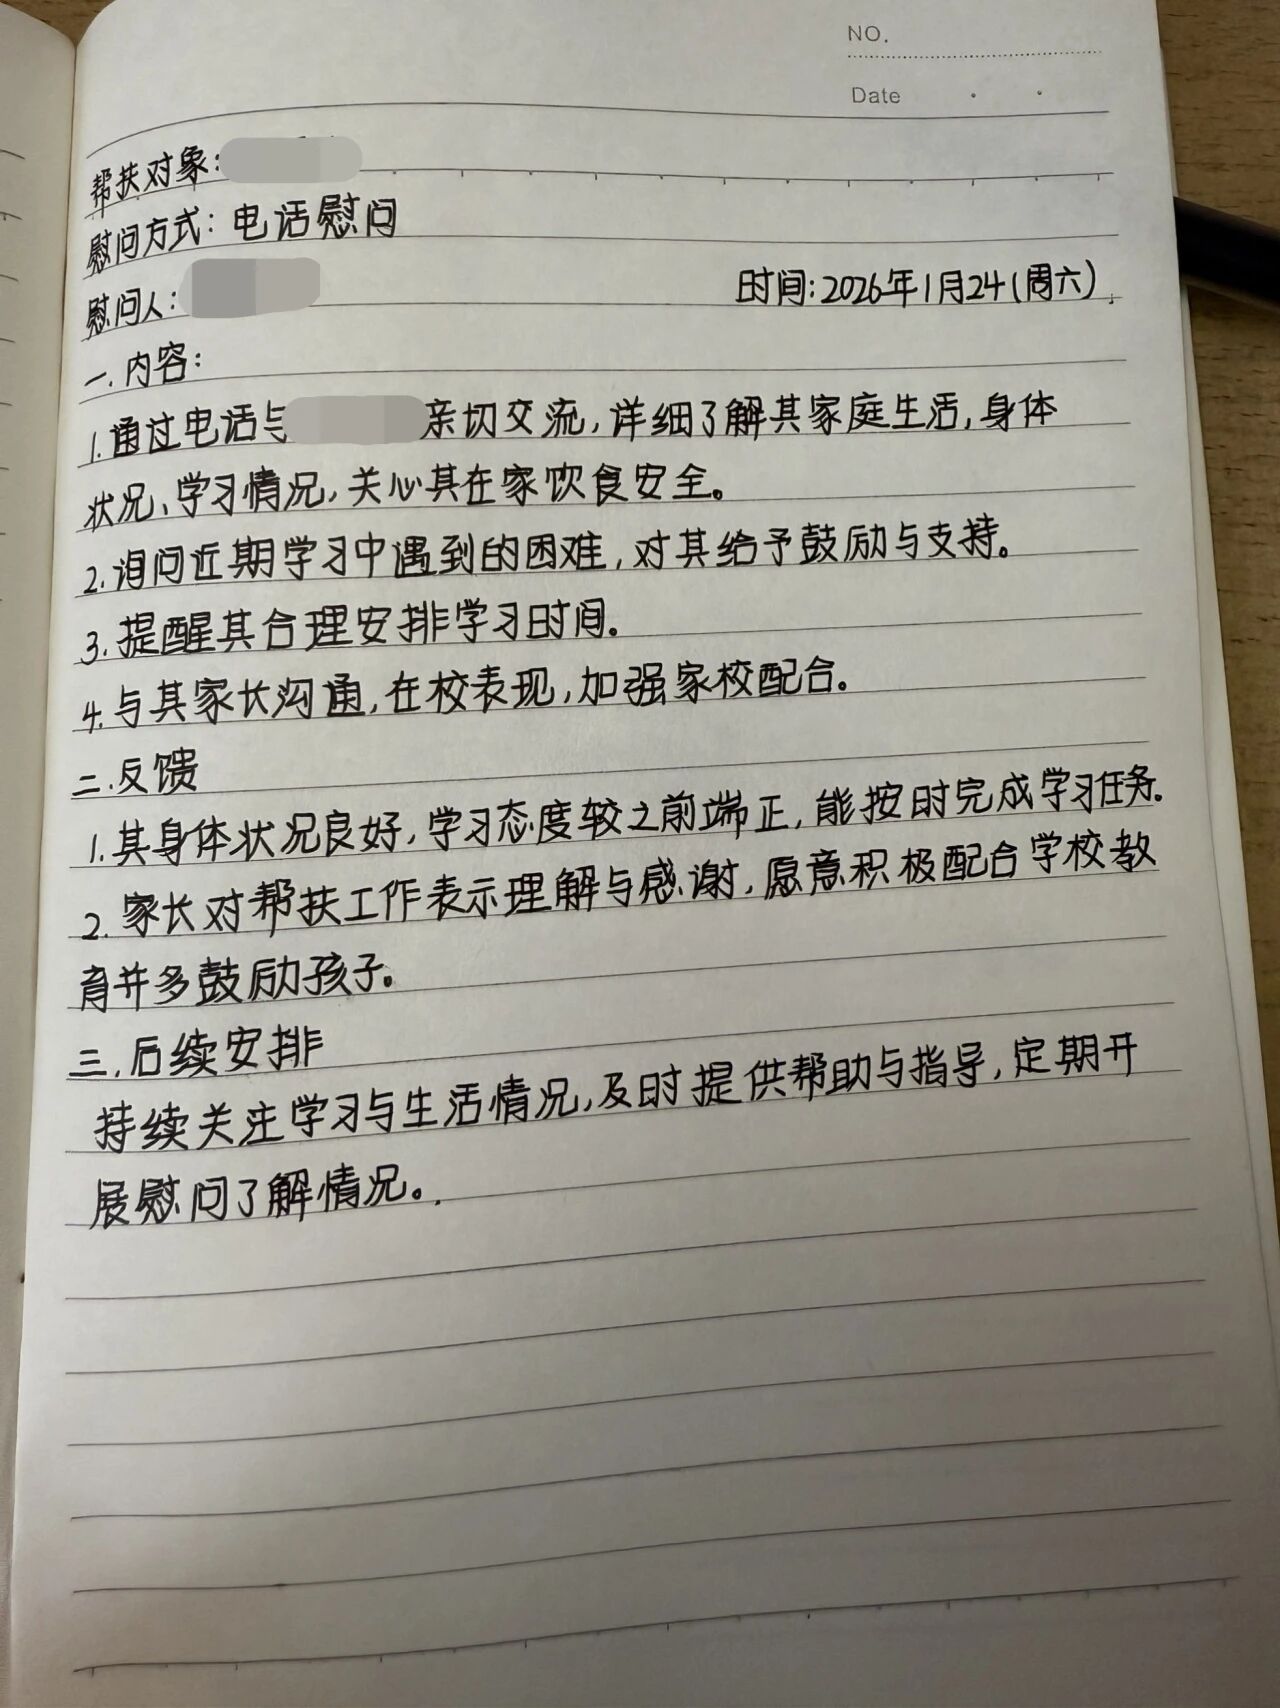 NO.
Date
帮扶对象:
慰问方式: 电话慰问
慰问人:
时间:2026年1月24(周六)
一.内容:
1.通过电话与亲切交流,详细了解其家庭生活,身体
状况、学习情况,关心其在家饮食安全。
2.询问近期学习中遇到的困难,对其给予鼓励与支持。
3.提醒其合理安排学习时间。
4.与其家长沟通,在校表现,加强家校配合。
二.反馈
1.其身体状况良好,学习态度较之前端正,能按时完成学习任务.
2.家长对帮扶工作表示理解与感谢,愿意积极配合学校教
育并多鼓励孩子。
三.后续安排
持续关注学习与生活情况,及时提供帮助与指导,定期开
展慰问了解情况。